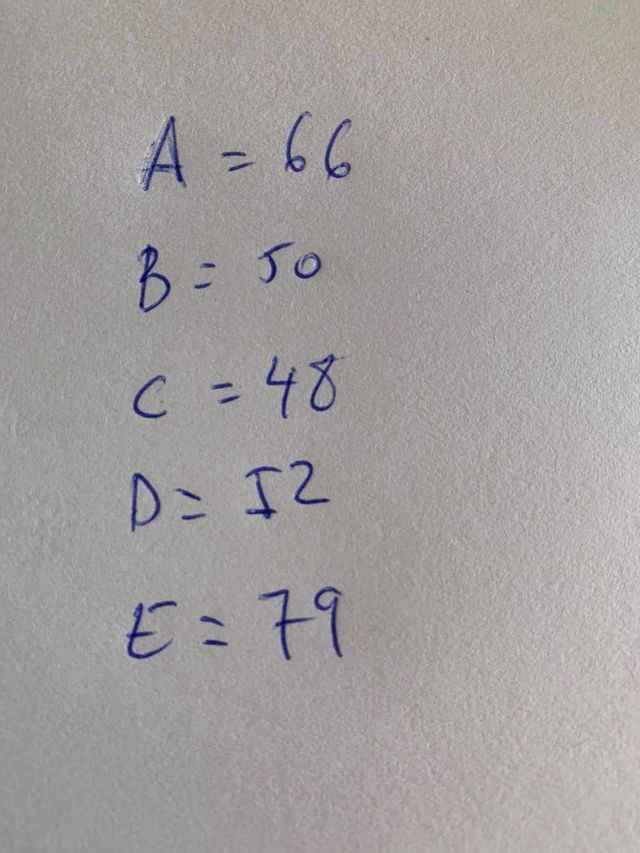 A = 66
B = 50
C = 48
D = 52
E = 79